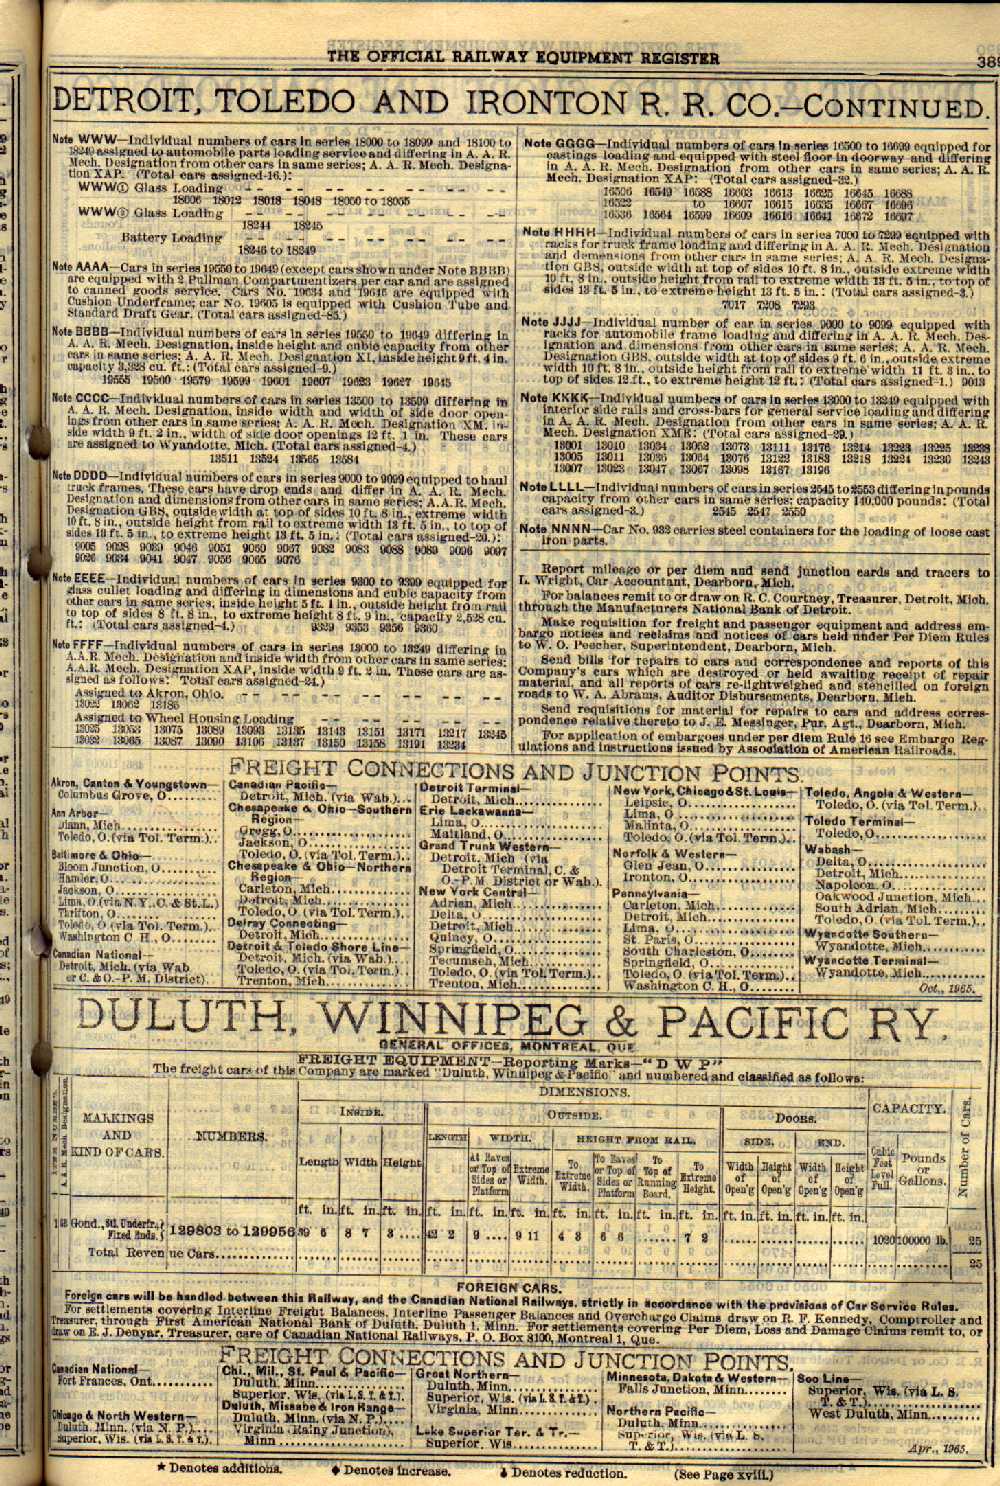 THE OFFICIAL RAILWAY EQUIPMENT REGISTER
389
DETROIT, TOLEDO AND IRONTON R. R. CO.—CONTINUED.
Note WWW—Individual numbers of cars in series 18000 to 18099 and 18100 to
18249 assigned to automobile parts loading service and differing in A. A. R.
Mech. Designation from other cars in same series; A. A. R. Mech. Designa-
tion XAP. (Total cars assigned-16.):
WWW① Glass Loading
18006 18012 18018 18048 18050 to 18055
WWW② Glass Loading
18244 18245
Battery Loading
18246 to 18249
Note AAAA—Cars in series 19550 to 19649 (except cars shown under Note BBBB)
are equipped with 2 Pullman Compartmentizers per car and are assigned
to canned goods service. Cars No. 19634 and 19645 are equipped with
Cushion Underframe; car No. 19605 is equipped with Cushion Tube and
Standard Draft Gear. (Total cars assigned-85.)
Note BBBB—Individual numbers of cars in series 19550 to 19649 differing in
A. A. R. Mech. Designation, inside height and cubic capacity from other
cars in same series; A. A. R. Mech. Designation XI, inside height 9 ft. 4 in.
capacity 3,328 cu. ft.: (Total cars assigned-9.)
19555 19560 19579 19599 19601 19607 19623 19627 19645
Note CCCC—Individual numbers of cars in series 13500 to 13599 differing in
A. A. R. Mech. Designation, inside width and width of side door open-
ings from other cars in same series; A. A. R. Mech. Designation XM, in-
side width 9 ft. 2 in., width of side door openings 12 ft. 1 in. These cars
are assigned to Wyandotte, Mich. (Total cars assigned-4.)
13511 13524 13565 13584
Note DDDD—Individual numbers of cars in series 9000 to 9099 equipped to haul
truck frames. These cars have drop ends and differ in A. A. R. Mech.
Designation and dimensions from other cars in same series; A.A.R. Mech.
Designation GBS, outside width at top of sides 10 ft. 8 in., extreme width
10 ft. 8 in., outside height from rail to extreme width 13 ft. 5 in., to top of
sides 13 ft. 5 in., to extreme height 13 ft. 5 in.: (Total cars assigned-20.):
9005 9028 9039 9046 9051 9060 9067 9082 9083 9088 9089 9096 9097
9026 9034 9041 9047 9056 9065 9076
Note EEEE—Individual numbers of cars in series 9300 to 9399 equipped for
glass cullet loading and differing in dimensions and cubic capacity from
other cars in same series; inside height 5 ft. 1 in., outside height from rail
to top of sides 8 ft. 8 in., to extreme height 8 ft. 9 in., capacity 2,528 cu.
ft.: (Total cars assigned-4.) 9329 9353 9356 9360
Note FFFF—Individual numbers of cars in series 13000 to 13249 differing in
A.A.R. Mech. Designation and inside width from other cars in same series;
A.A.R. Mech. Designation XAP, inside width 9 ft. 2 in. These cars are as-
signed as follows: Total cars assigned-24.)
Assigned to Akron, Ohio.
13022 13062 13185
Assigned to Wheel Housing Loading
13025 13053 13075 13089 13093 13135 13143 13151 13171 13217 13245
13032 13065 13087 13090 13106 13137 13150 13158 13191 13234
Note GGGG—Individual numbers of cars in series 16500 to 16699 equipped for
castings loading and equipped with steel floor in doorway and differing
in A. A. R. Mech. Designation from other cars in same series; A. A. R.
Mech. Designation XAP: (Total cars assigned-32.)
16506 16549 16588 16603 16613 16625 16645 16688
16522 to 16607 16615 16635 16667 16696
16536 16564 16599 16609 16616 16641 16672 16697
Note HHHH—Individual numbers of cars in series 7000 to 7299 equipped with
racks for truck frame loading and differing in A. A. R. Mech. Designation
and demensions from other cars in same series; A. A. R. Mech. Designa-
tion GBS, outside width at top of sides 10 ft. 8 in., outside extreme width
10 ft. 8 in., outside height from rail to extreme width 13 ft. 5 in., to top of
sides 13 ft. 5 in., to extreme height 13 ft. 5 in.: (Total cars assigned-3.)
7017 7208 7293
Note JJJJ—Individual number of car in series 9000 to 9099 equipped with
racks for automobile frame loading and differing in A. A. R. Mech. Des-
ignation and dimensions from other cars in same series; A. A. R. Mech.
Designation GBS, outside width at top of sides 9 ft. 6 in., outside extreme
width 10 ft. 8 in., outside height from rail to extreme width 11 ft. 3 in., to
top of sides 12 ft., to extreme height 12 ft.: (Total cars assigned-1.) 9013
Note KKKK—Individual numbers of cars in series 13000 to 13249 equipped with
interior side rails and cross-bars for general service loading and differing
in A. A. R. Mech. Designation from other cars in same series; A. A. R.
Mech. Designation XME: (Total cars assigned-29.)
13001 13010 13034 13052 13073 13111 13176 13214 13223 13225 13238
13005 13011 13035 13054 13076 13122 13183 13218 13224 13230 13243
13007 13023 13047 13067 13098 13167 13196
Note LLLL—Individual numbers of cars in series 2545 to 2553 differing in pounds
capacity from other cars in same series; capacity 140,000 pounds: (Total
cars assigned-3.) 2545 2547 2550
Note NNNN—Car No. 932 carries steel containers for the loading of loose cast
iron parts.
Report mileage or per diem and send junction cards and tracers to
L. Wright, Car Accountant, Dearborn, Mich.
For balances remit to or draw on R. C. Courtney, Treasurer, Detroit, Mich.
through the Manufacturers National Bank of Detroit.
Make requisition for freight and passenger equipment and address em-
bargo notices and reclaims and notices of cars held under Per Diem Rules
to W. O. Peecher, Superintendent, Dearborn, Mich.
Send bills for repairs to cars and correspondence and reports of this
Company's cars which are destroyed or held awaiting receipt of repair
material, and all reports of cars re-lightweighed and stencilled on foreign
roads to W. A. Abrams, Auditor Disbursements, Dearborn, Mich.
Send requisitions for material for repairs to cars and address corres-
pondence relative thereto to J. E. Messinger, Pur. Agt., Dearborn, Mich.
For application of embargoes under per diem Rule 16 see Embargo Reg-
ulations and Instructions issued by Association of American Railroads.
FREIGHT CONNECTIONS AND JUNCTION POINTS.
Akron, Canton & Youngstown—
Columbus Grove, O.
Ann Arbor—
Diann, Mich.
Toledo, O. (via Tol. Term.)
Baltimore & Ohio—
Bloom Junction, O.
Hamler, O.
Jackson, O.
Lima, O. (via N.Y., C. & St.L.)
Thrifton, O.
Toledo, O. (via Tol. Term.)
Washington C. H., O.
Canadian National—
Detroit, Mich. (via Wab
or C. & O.-P. M. District)
Canadian Pacific—
Detroit, Mich. (via Wab.)
Chesapeake & Ohio—Southern
Region—
Gregg, O.
Jackson, O.
Toledo, O. (via Tol. Term.)
Chesapeake & Ohio—Northern
Region—
Carleton, Mich.
Detroit, Mich.
Toledo, O. (via Tol. Term.)
Delray Connecting—
Detroit, Mich.
Detroit & Toledo Shore Line—
Detroit, Mich. (via Wab.)
Toledo, O. (via Tol. Term.)
Trenton, Mich.
Detroit Terminal—
Detroit, Mich.
Erie Lackawanna—
Lima, O.
Maitland, O.
Grand Trunk Western—
Detroit, Mich (via
Detroit Terminal, C. &
O.-P.M District or Wab.)
New York Central—
Adrian, Mich.
Delta, O.
Detroit, Mich.
Quincy, O.
Springfield, O.
Tecumseh, Mich.
Toledo, O. (via Tol. Term.)
Trenton, Mich.
New York, Chicago & St. Louis—
Leipsic, O.
Lima, O.
Malinta, O.
Toledo, O. (via Tol. Term.)
Norfolk & Western—
Glen Jean, O.
Ironton, O.
Pennsylvania—
Carleton, Mich
Detroit, Mich.
Lima, O.
St. Paris, O.
South Charleston, O.
Springfield, O.
Toledo, O. (via Tol. Term.)
Washington C. H., O
Toledo, Angola & Western—
Toledo, O. (via Tol. Term.)
Toledo Terminal—
Toledo, O.
Wabash—
Delta, O.
Detroit, Mich.
Napoleon, O.
Oakwood Junction, Mich.
South Adrian, Mich.
Toledo, O. (via Tol. Term.)
Wyandotte Southern—
Wyandotte, Mich.
Wyandotte Terminal—
Wyandotte, Mich.
Oct., 1965.
DULUTH, WINNIPEG & PACIFIC RY.
GENERAL OFFICES, MONTREAL, QUE.
FREIGHT EQUIPMENT—Reporting Marks—"D W P"
The freight cars of this Company are marked "Duluth, Winnipeg & Pacific" and numbered and classified as follows:
A. A. R. Mech. Designation.
MARKINGS AND KIND OF CARS.
NUMBERS.
DIMENSIONS.
INSIDE. Length Width Height
OUTSIDE.
LENGTH
WIDTH. At Eaves or Top of Sides or Platform Extreme Width.
HEIGHT FROM RAIL. To Extreme Width. To Eaves or Top of Sides or Platform To Top of Running Board. To Extreme Height.
DOORS.
SIDE. Width of Open'g Height of Open'g
END. Width of Open'g Height of Open'g
CAPACITY. Cubic Feet Level Full. Pounds or Gallons.
Number of Cars.
ft. in. ft. in. ft. in. ft. in. ft. in. ft. in. ft. in. ft. in. ft. in. ft. in. ft. in. ft. in. ft. in. ft. in.
Gond., Stl. Underfra./ Fixed Ends. 129803 to 129956 39 6 8 7 3 42 2 9 9 11 4 3 6 6 7 2 1020 100000 lb. 25
Total Revenue Cars 25
FOREIGN CARS.
Foreign cars will be handled between this Railway, and the Canadian National Railways, strictly in accordance with the provisions of Car Service Rules.
For settlements covering Interline Freight Balances, Interline Passenger Balances and Overcharge Claims draw on R. F. Kennedy, Comptroller and
Treasurer, through First American National Bank of Duluth, Duluth 1, Minn. For settlements covering Per Diem, Loss and Damage Claims remit to, or
draw on E. J. Denyar, Treasurer, care of Canadian National Railways, P. O. Box 8100, Montreal 1, Que.
FREIGHT CONNECTIONS AND JUNCTION POINTS.
Canadian National—
Fort Frances, Ont.
Chicago & North Western—
Duluth, Minn. (via N. P.)
Superior, Wis. (via L. S. T. & T.)
Chi., Mil., St. Paul & Pacific—
Duluth, Minn.
Superior, Wis. (via L. S. T. & T.)
Duluth, Missabe & Iron Range—
Duluth, Minn. (via N. P.)
Virginia (Rainy Junction),
Minn
Great Northern—
Duluth, Minn.
Superior, Wis. (via L. S. T. & T.)
Virginia, Minn.
Lake Superior Ter. & Tr.—
Superior, Wis.
Minnesota, Dakota & Western—
Falls Junction, Minn.
Northern Pacific—
Duluth, Minn.
Superior, Wis. (via L. S.
T. & T.)
Soo Line—
Superior, Wis. (via L. S.
T. & T.)
West Duluth, Minn.
Apr., 1965.
★ Denotes additions. ♦ Denotes increase. Denotes reduction. (See Page xviii.)